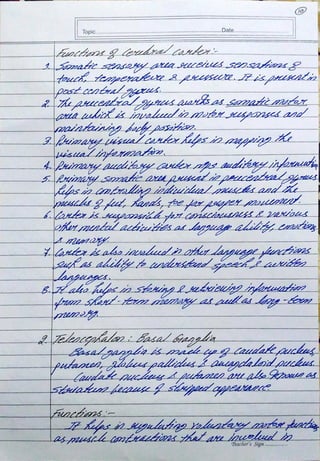 Topic
Date
Functions of Cerebral Cortex :-
1. Somatic sensory area receives sensations of
touch, temperature & pressure. It is present in
post central gyrus.
2. The precentral gyrus works as somatic motor
area which is involved in motor responses and
maintaining body position.
3. Primary visual cortex helps in mapping the
visual information.
4. Primary auditory cortex maps auditory information
5. Primary somatic area present in precentral gyrus
helps in controlling individual muscles and the
muscles of feet, hands, toe for proper movement.
6. Cortex is responsible for consciousness & various
other mental activities as language ability, emotions
& memory.
7. Cortex is also involved in other language functions
such as ability to understand speech & written
languages.
8. It also helps in storing & retrieving information
from short-term memory as well as long-term
memory.
2. Telencephalon : Basal Ganglia
Basal ganglia is made up of caudate nucleus,
putamen, globus pallidus & amygdaloid nucleus.
Caudate nucleus & putamen are also known as
striatum because of stripped appearance
Functions :-
It helps in regulating voluntary motor function
as muscle contractions that are involved in
Teacher's Sign